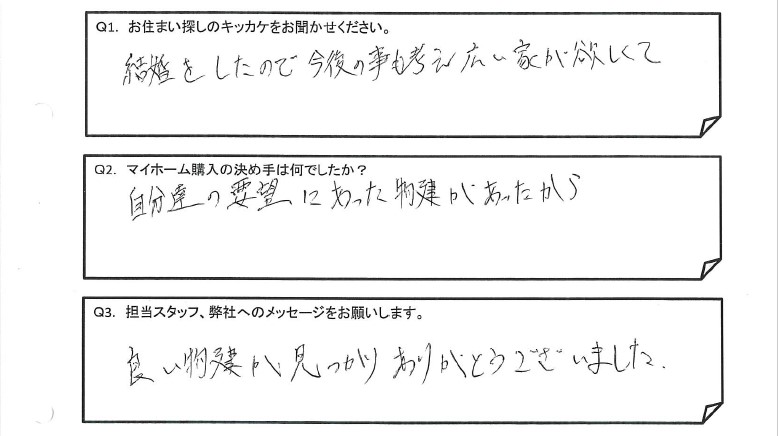 Q1. お住まい探しのキッカケをお聞かせください。
結婚をしたので今後の事も考え広い家が欲しくて
Q2. マイホーム購入の決め手は何でしたか？
自分達の要望にあった物建があったから
Q3. 担当スタッフ、弊社へのメッセージをお願いします。
良い物建が見つかりありがとうございました.